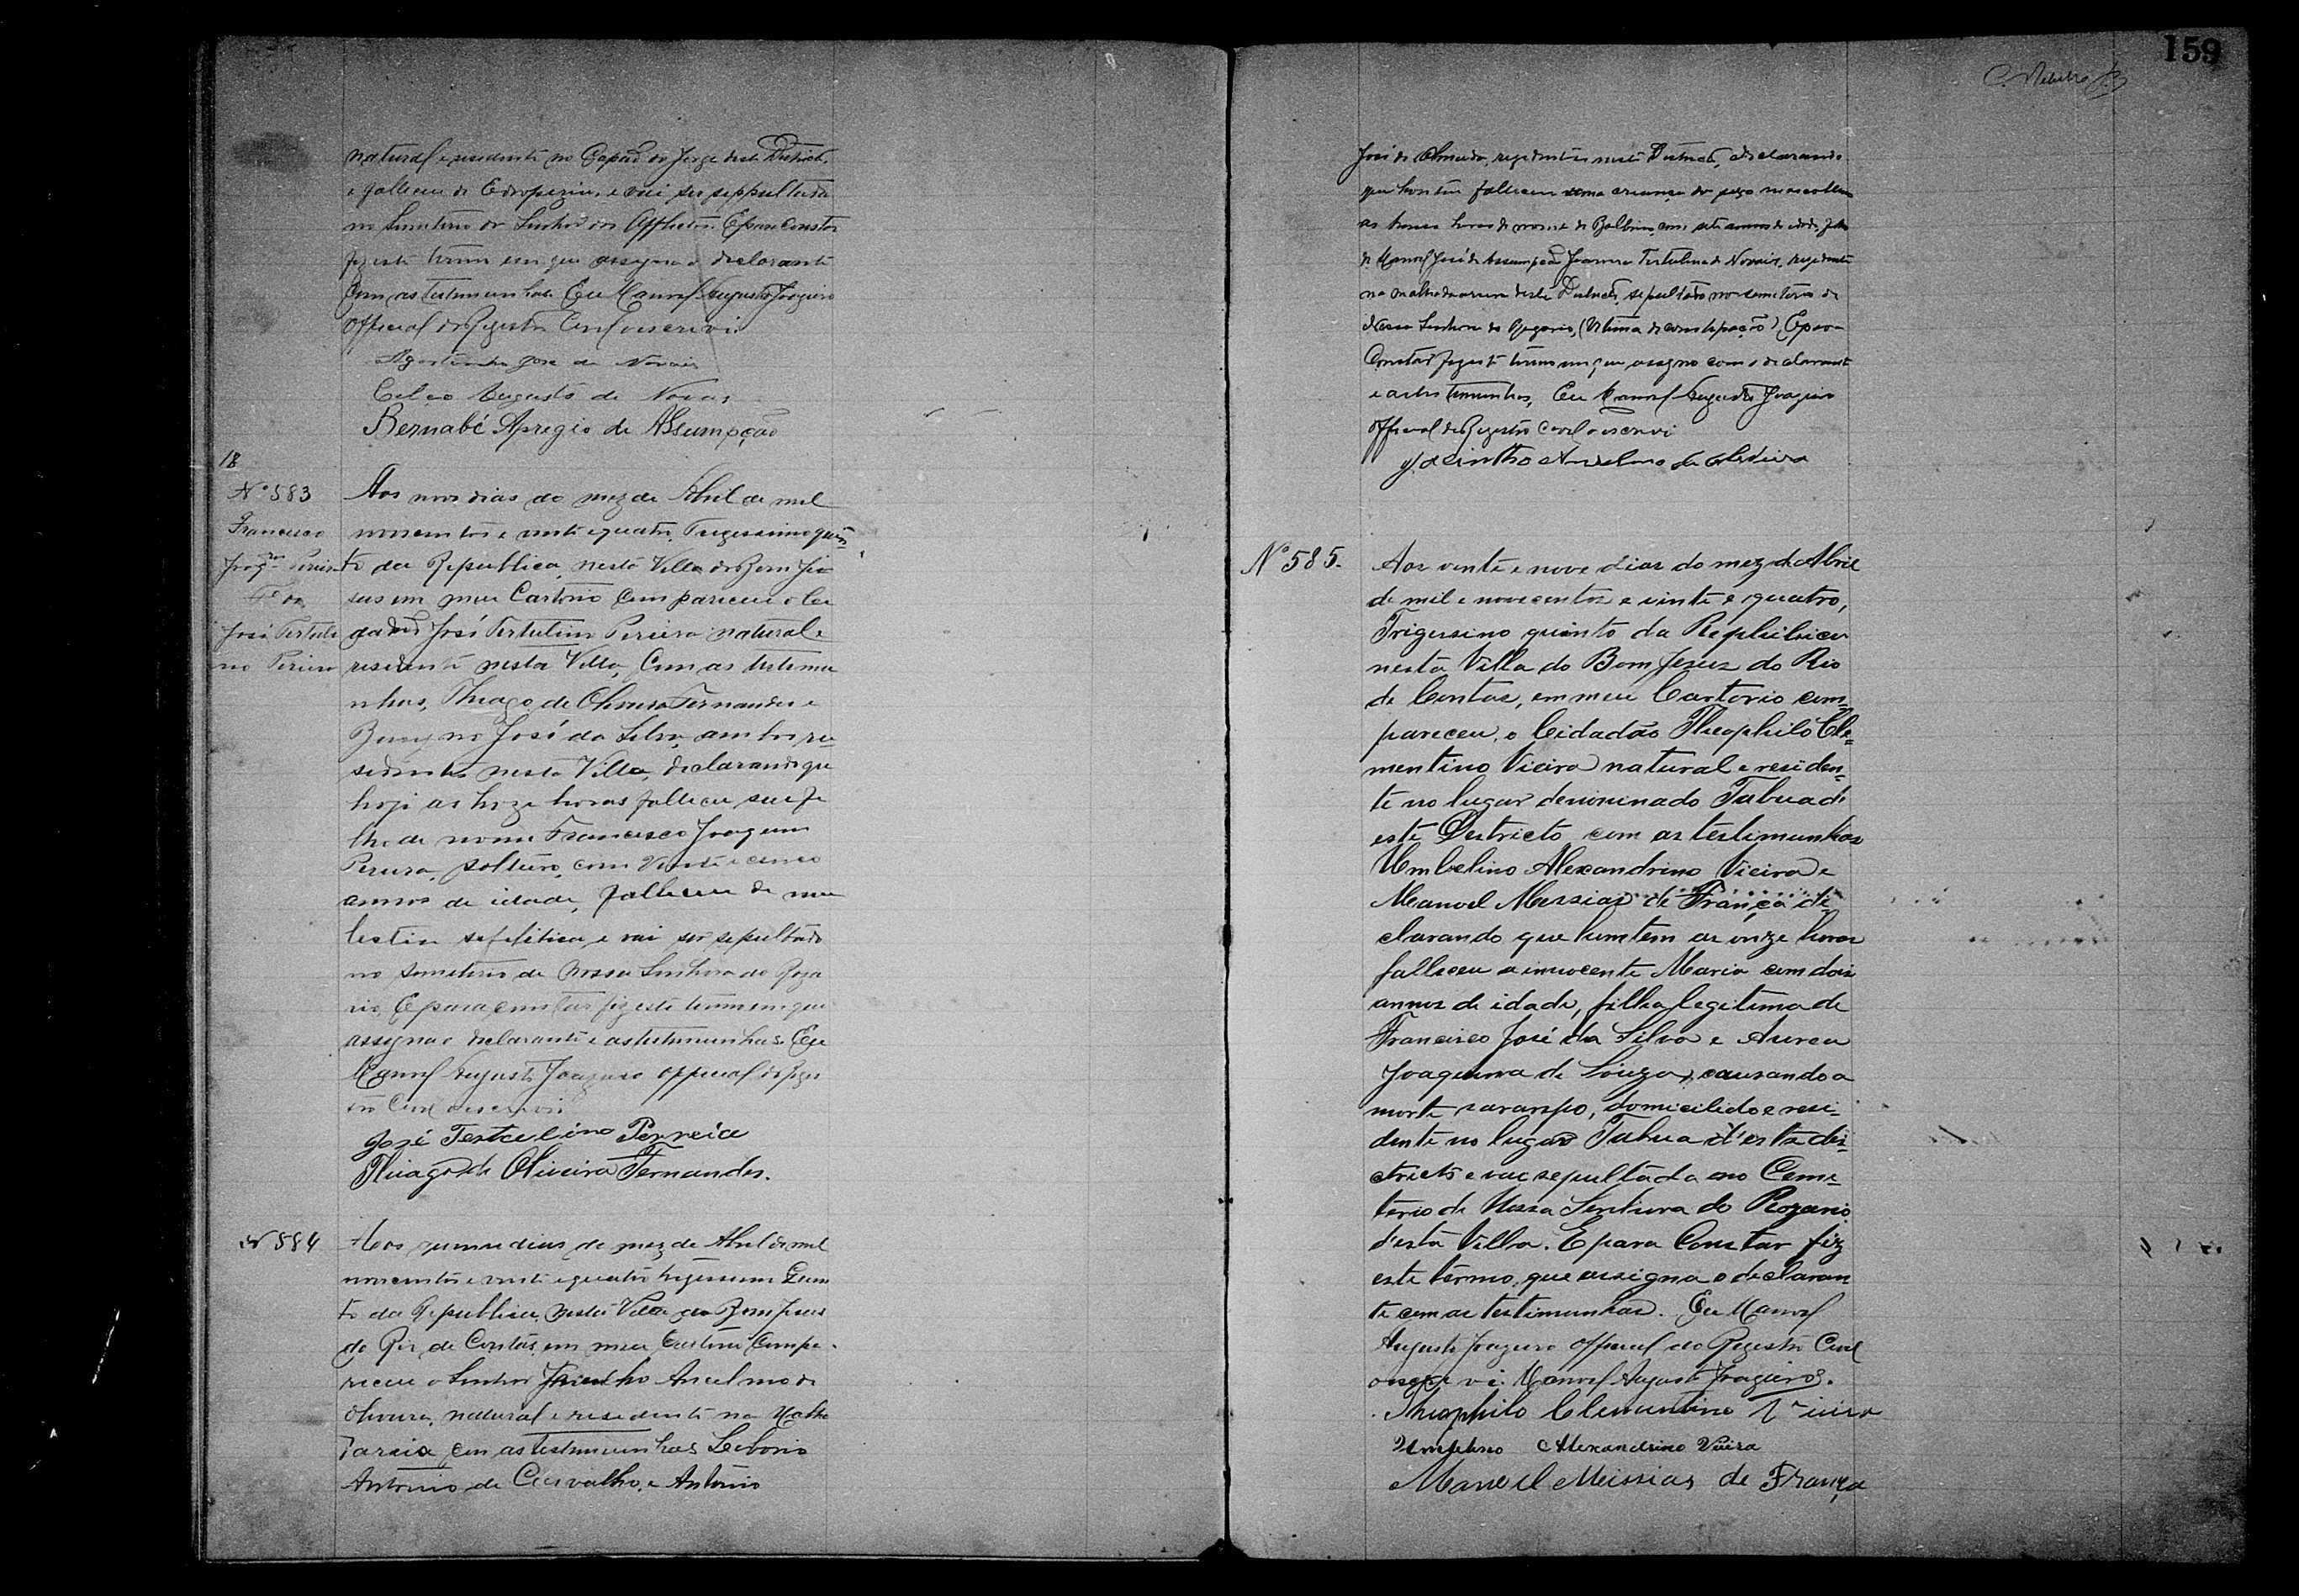 natural e residente no Capão do Jorge deste Districto,
e falleceu de Edropezia, e vai ser seppultada
no Semiterio do Senhor dos Afflictos. E para constar
fiz este termo em que assigna o declarante
com as testemunhas. Eu Manoel Augusto
Official do Registro Civil o escrevi.
Agostinho José de Novais
Celço Augusto de Novais
Bernabé Apregio de Assumpção
18
Nº 583
Francisco
Joaqm Pereira
José Tertuli
no Pereira
Aos nove dias do mez de Abril de mil
novecentos e vinte e quatro, Trigessimo quin-
to da Republica, nesta Villa do Bom Je
sus em meu Cartorio compareceu o Ci
dadão José Tertulino Pereira natural e
residente nesta Villa, com as testemu
nhas, Thiago de Oliveira Fernandes e
José da Silva, ambos re-
sidentes nesta Villa, declarando que
hoje as honze horas falleceu seu fi
lho de nome Francisco Joaquim
Pereira, solteiro, com vinte e cinco
annos de idade, falleceu de mo
lestia sefelitica, e vai ser sepultado
no Semiterio de Nossa Senhora do Roza
rio. E para constar fiz este termo em que
assigna o declarante e as testemunhas. Eu
Manoel Augusto official do Regis
tro Civil o escrevi.
José Tertulino Perreia
Thiago de Oliveira Fernandes.
Nº 584
Aos quinze dias do mez de Abril de mil
novecentos e vinte e quatro trigessimo Quin
to da Republica, nesta Villa do Bom Jesus
do Rio de Contas, em meu Cartorio compa-
receu o Senhor Jacintho Ancelmo de
Oliveira, natural e residente na Malha
da areia com as testemunhas Leoborio
Antonio de Carvalho, e Antonio
159
José de Almeida, rezidentes neste Districto, declarando
que hontem falleceu uma criança do sexo masculino
as horas de nome de Balbino, com sete annos de idade, filho
de Manoel José de Assumpção Joanna Tertulina de Novais, rezidente
na malhada areia deste Districto, sepultado no semeterio de
Nossa Senhora do Rozario, (Vitima de constipação) E para
Constar fiz este termo em que assigno com o declarante
e as testemunhas, Eu Manoel Augusto
Official do Registro Civil o escrevi
Jacintho Anselmo de Oliveira
Nº 585.
Aos vinte e nove dias do mez de Abril
de mil e novecentos e vinte e quatro,
Trigessino quinto da Republica
nesta Villa do Bom Jesus do Rio
de Contas, em meu Cartorio com-
pareceu, o Cidadão Theophilo Cle-
mentino Vieira natural e residen-
te no lugar denominado Tabua d'
este Destricto com as testimunhas
Umbelino Alexandrino Vieira e
Manoel Messias de França de-
clarando que hontem as onze horas
falleceu a innocente Maria com dois
annos de idade, filha legitima de
Francisco José da Silva e Aurea
Joaquina de Souza, causando a
morte sarampo, domicilido e resi-
dente no lugar Tabua d'esta dis-
tricto e vae sepultada no Cemi-
terio de Nossa Senhora do Rozario
d'esta Villa. E para Constar fiz
este termo, que assigna o declaran
te com as testimunhas. Eu Manoel
Augusto Official do Registro Civil
o escrevi. Manoel Augusto
Theophilo Clementino Vieira
Umbelino Alexandrino Vieira
Manoel Meissias de França